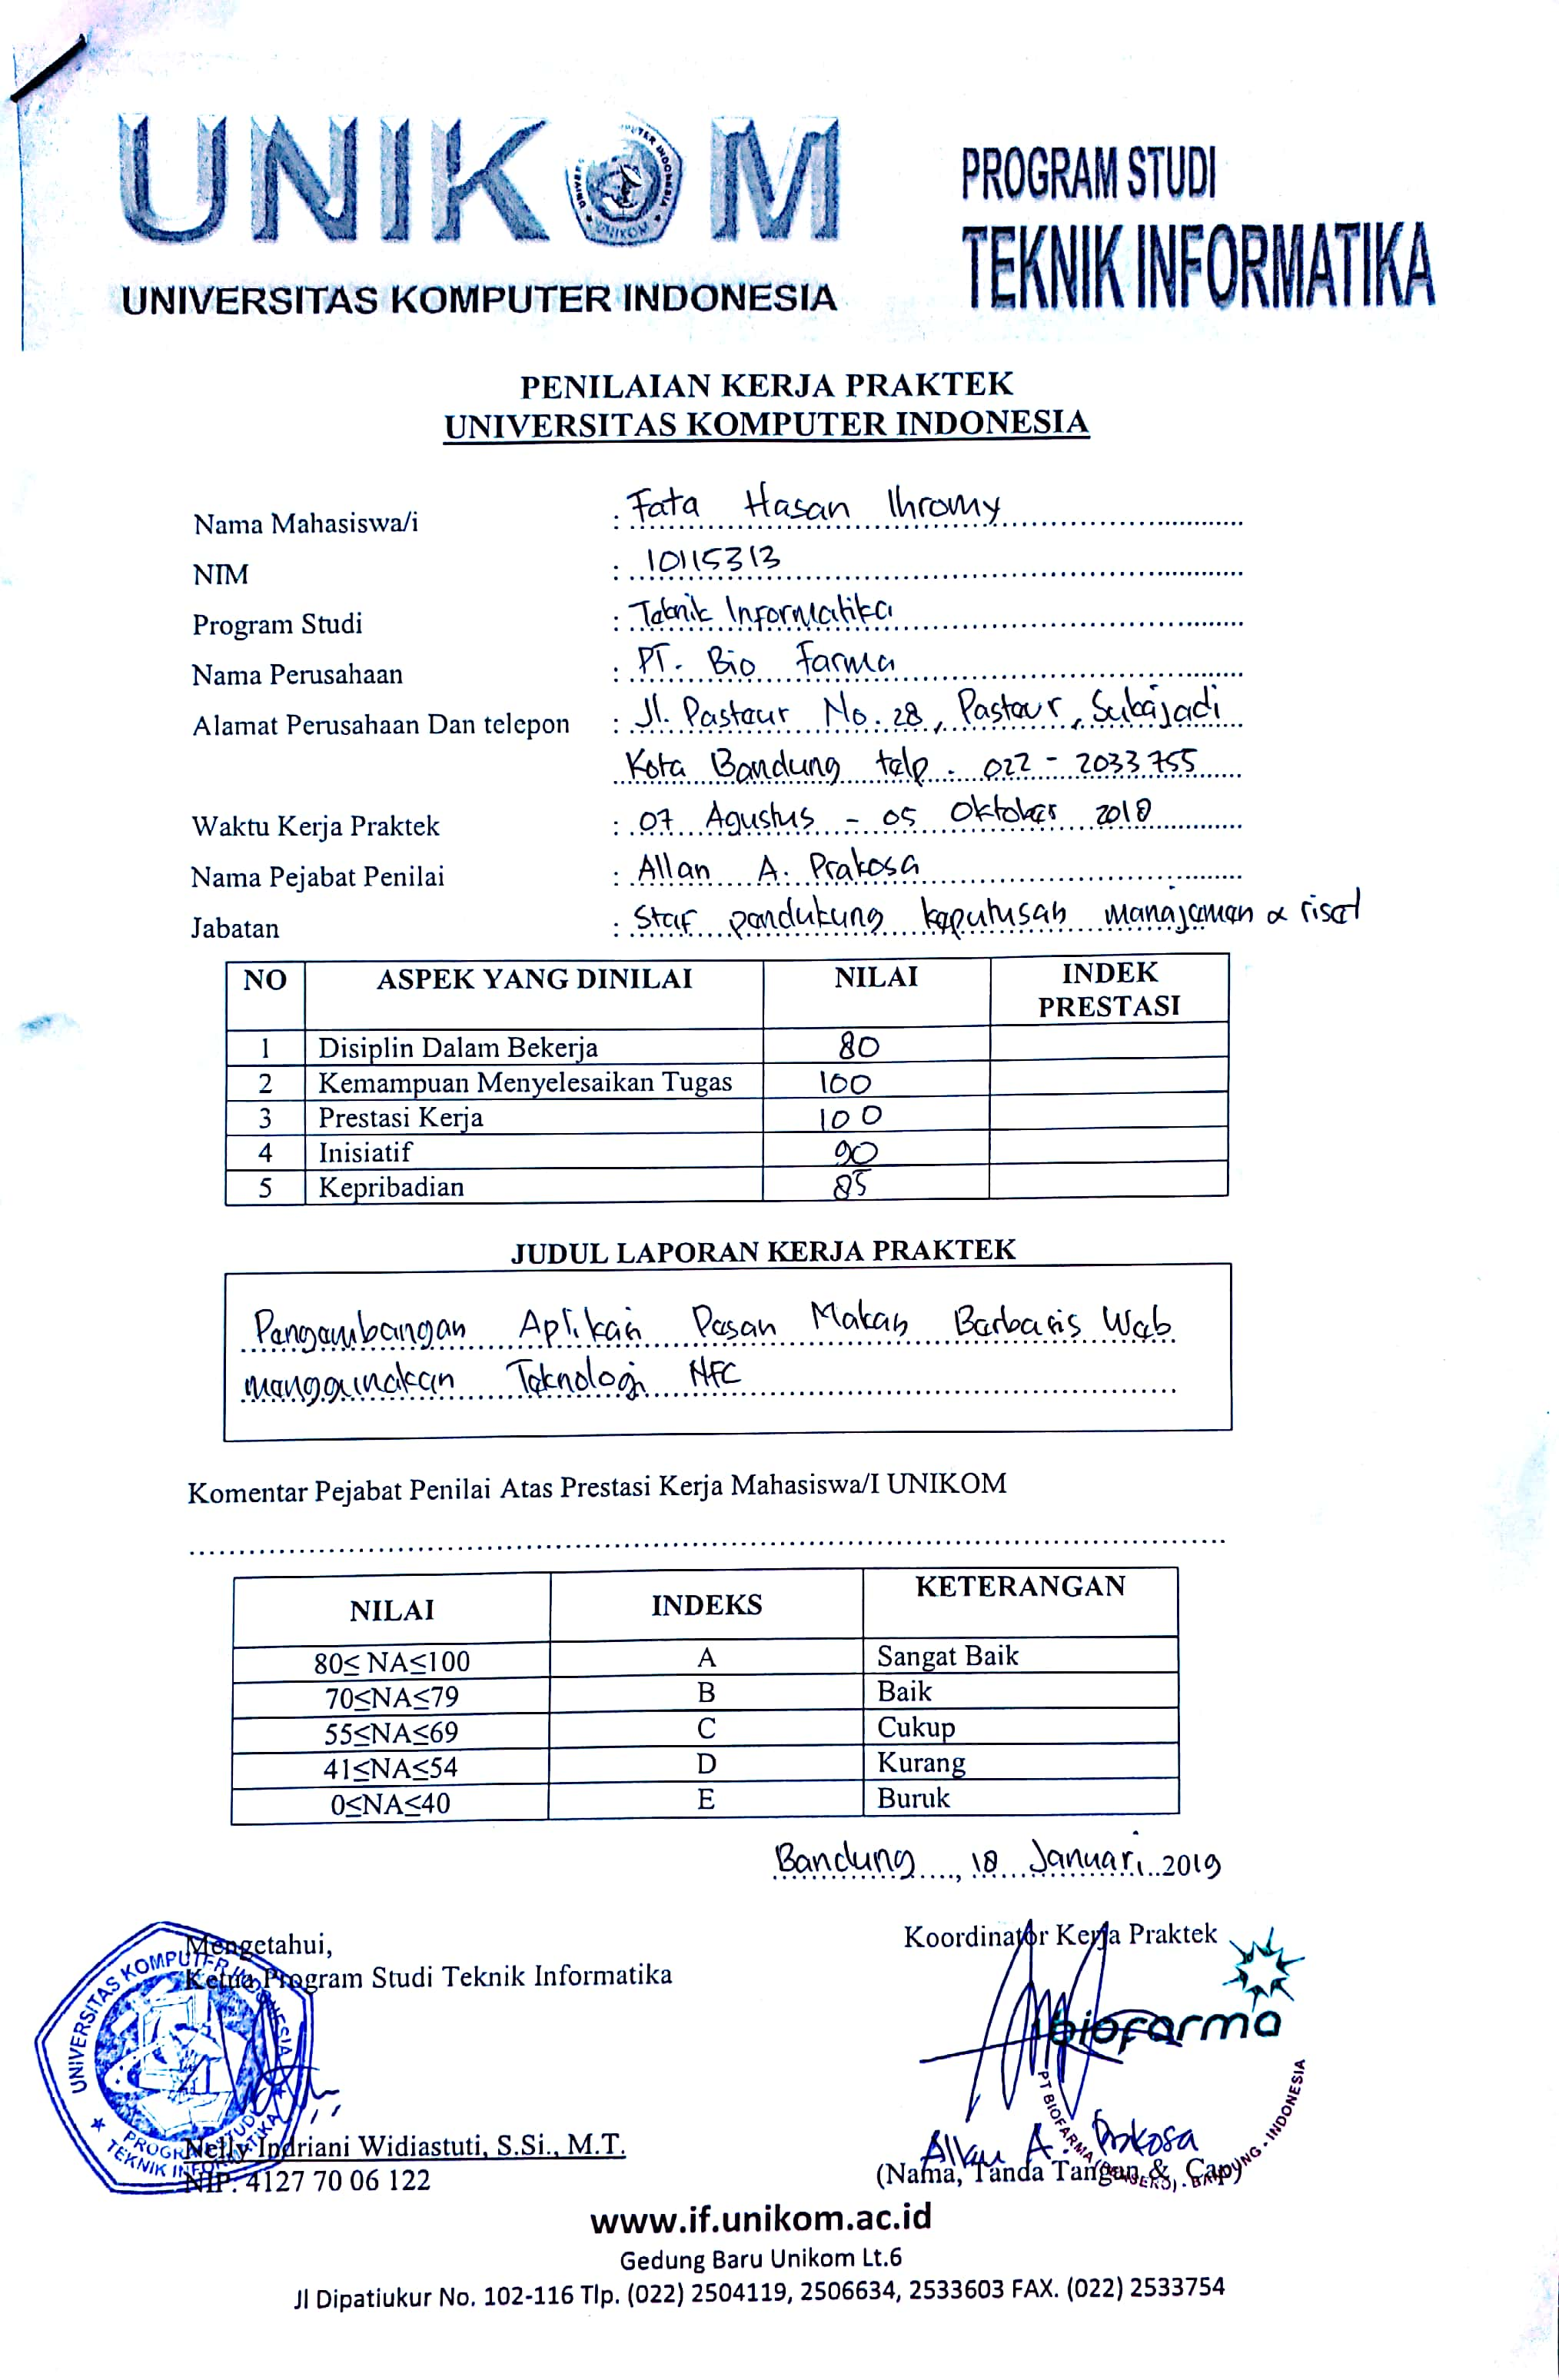 UNIKOM
UNIVERSITAS KOMPUTER INDONESIA
PROGRAM STUDI
TEKNIK INFORMATIKA
PENILAIAN KERJA PRAKTEK
UNIVERSITAS KOMPUTER INDONESIA
Nama Mahasiswa/i : Fata Hasan Ihromy
NIM : 10115313
Program Studi : Teknik Informatika
Nama Perusahaan : PT. Bio Farma
Alamat Perusahaan Dan telepon : Jl. Pasteur No. 28, Pasteur, Sukajadi
Kota Bandung telp. 022 - 2033755
Waktu Kerja Praktek : 07 Agustus - 05 Oktober 2018
Nama Pejabat Penilai : Allan A. Prakosa
Jabatan : Staf pendukung keputusan manajemen & riset
NO ASPEK YANG DINILAI NILAI INDEK PRESTASI
1 Disiplin Dalam Bekerja 80
2 Kemampuan Menyelesaikan Tugas 100
3 Prestasi Kerja 100
4 Inisiatif 90
5 Kepribadian 85
JUDUL LAPORAN KERJA PRAKTEK
Pengembangan Aplikasi Pesan Makan Berbasis Web
menggunakan Teknologi NFC
Komentar Pejabat Penilai Atas Prestasi Kerja Mahasiswa/I UNIKOM
NILAI INDEKS KETERANGAN
80≤ NA≤100 A Sangat Baik
70≤NA≤79 B Baik
55≤NA≤69 C Cukup
41≤NA≤54 D Kurang
0≤NA≤40 E Buruk
Bandung, 18 Januari 2019
Mengetahui,
Ketua Program Studi Teknik Informatika
Koordinator Kerja Praktek
UNIVERSITAS KOMPUTER INDONESIA
PROGRAM STUDI
TEKNIK INFORMATIKA
biofarma
PT BIOFARMA (PERSERO) . BANDUNG - INDONESIA
Nelly Indriani Widiastuti, S.Si., M.T.
NIP. 4127 70 06 122
Allan A. Prakosa
(Nama, Tanda Tangan & Cap)
www.if.unikom.ac.id
Gedung Baru Unikom Lt.6
Jl Dipatiukur No. 102-116 Tlp. (022) 2504119, 2506634, 2533603 FAX. (022) 2533754